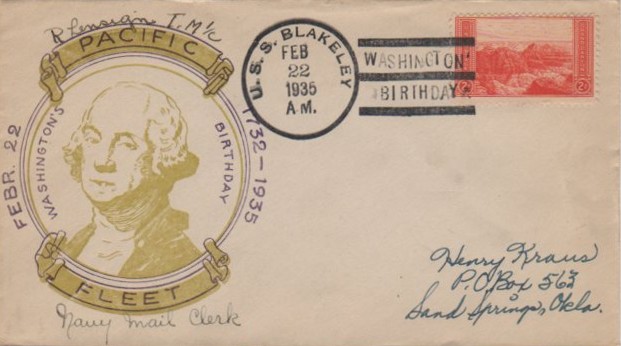 PACIFIC
FEBR. 22
WASHINGTON'S
BIRTHDAY
1732-1935
FLEET
Navy Mail Clerk
U.S.S. BLAKELEY
FEB
22
1935
A.M.
WASHINGTON'
BIRTHDAY
Henry Kraus
P.O. Box 563
Sand Springs, Okla.